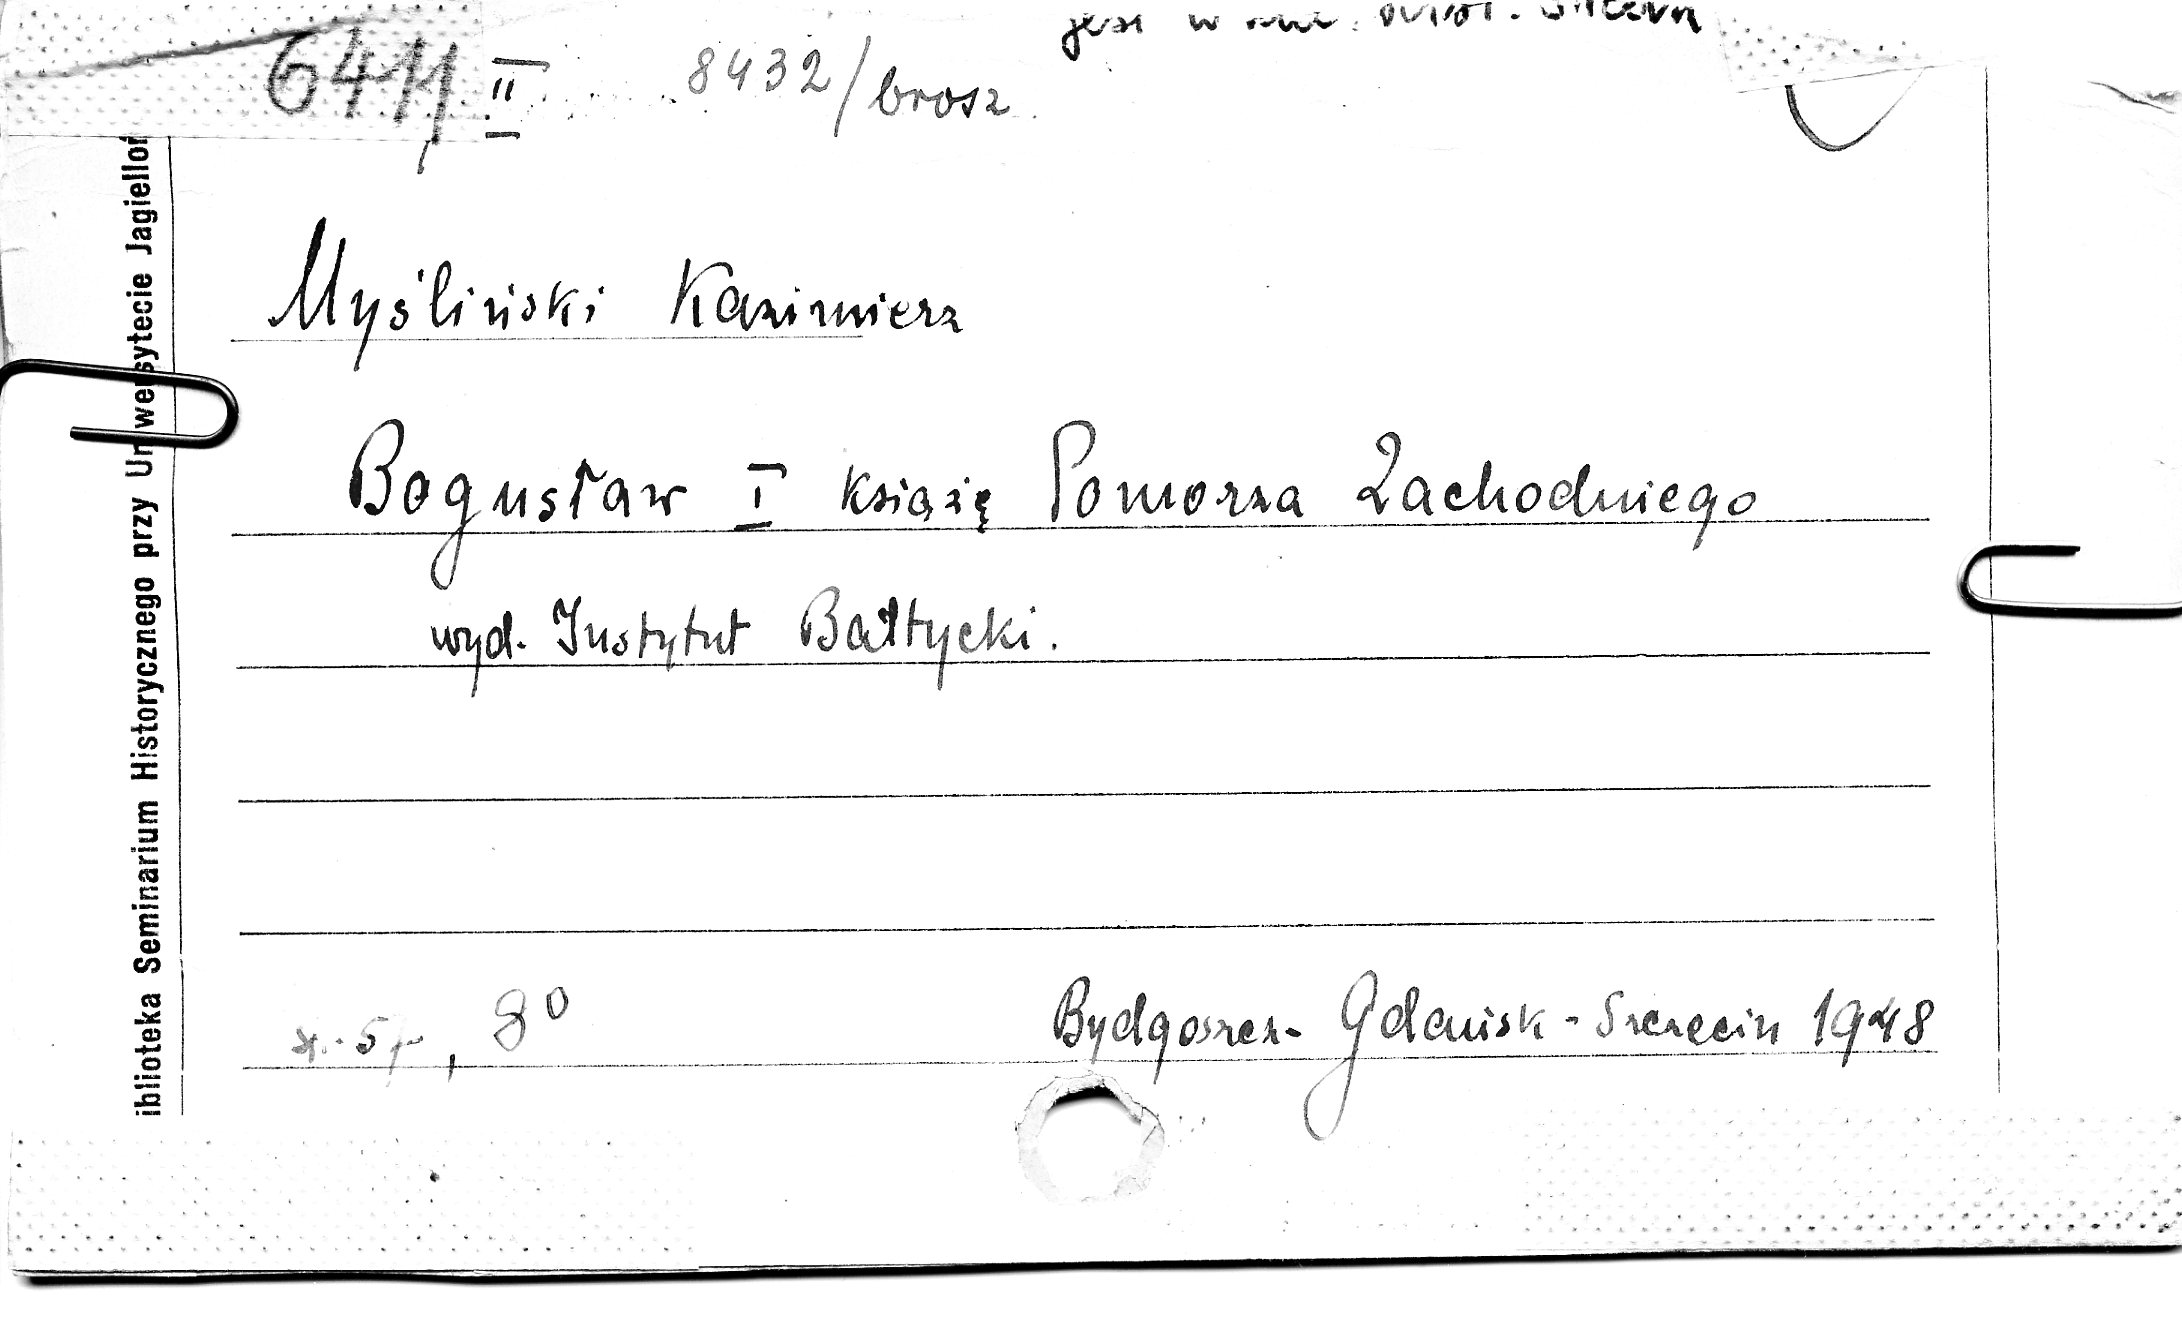 6411 II 8432/brosz
Myśliński Kazimierz
Bogusław I książę Pomorza Zachodniego
wyd. Instytut Bałtycki.
8° Bydgoszcz - Gdańsk - Szczecin 1948
iblioteka Seminarium Historycznego przy Uniwersytecie Jagielloń